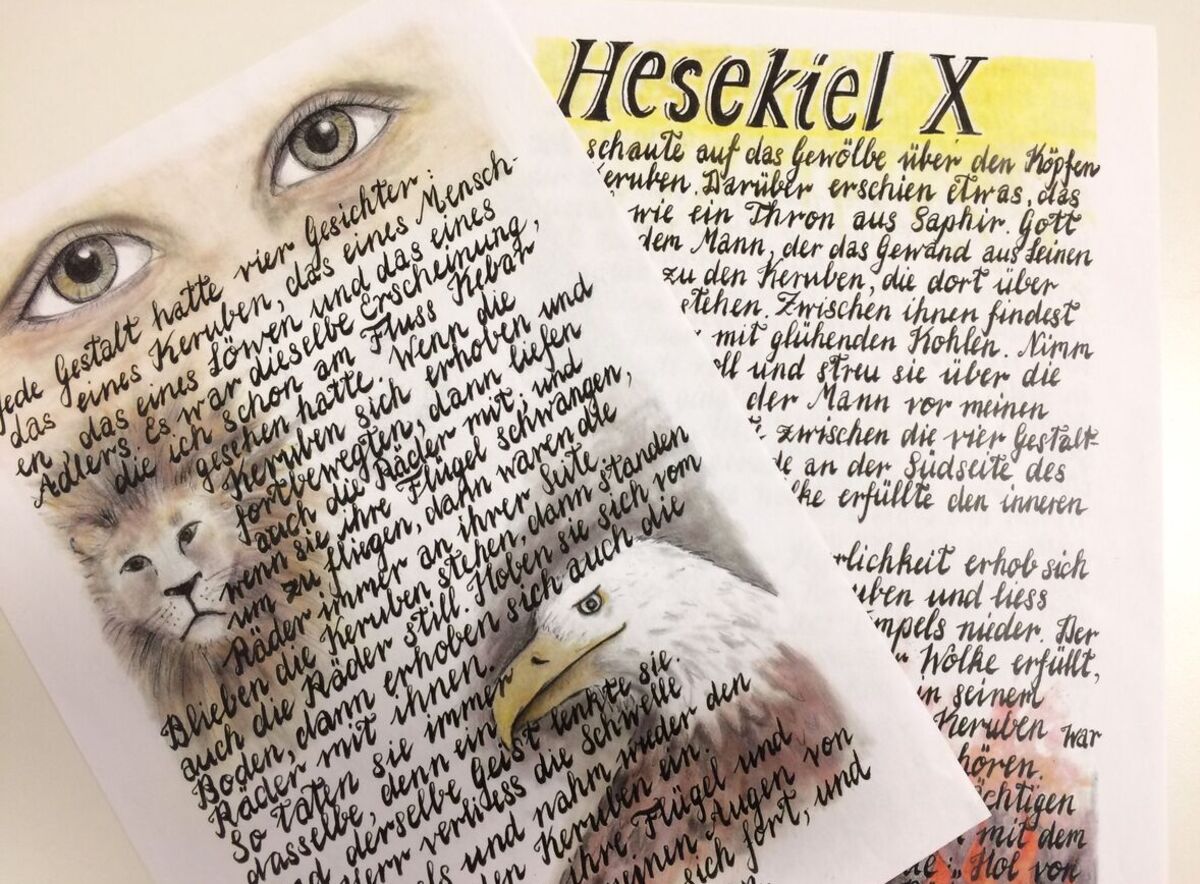 Hesekiel X
schaute auf das Gewölbe über den Köpfen
Keruben. Darüber erschien etwas, das
wie ein Thron aus Saphir. Gott
dem Mann, der das Gewand aus Leinen
zu den Keruben, die dort über
stehen. Zwischen ihnen findest
mit glühenden Kohlen. Nimm
und streu sie über die
der Mann vor meinen
zwischen die vier Gestalt-
an der Südseite des
erfüllte den inneren
erhob sich
und liess
nieder. Der
Wolke erfüllt,
seinem
Keruben war
hören.
mit dem
"Hol von
jede Gestalt hatte vier Gesichter:
das eines Keruben, das eines Mensch-
en, das eines Löwen und das eines
Adlers. Es war dieselbe Erscheinung,
die ich schon am Fluss Kebar
gesehen hatte. Wenn die
Keruben sich erhoben und
fortbewegten, dann liefen
auch die Räder mit; und
wenn sie ihre Flügel schwangen,
um zu fliegen, dann waren die
Räder immer an ihrer Seite.
Blieben die Keruben stehen, dann standen
auch die Räder still. Hoben sie sich vom
Boden, dann erhoben sich auch die
Räder mit ihnen.
So taten sie immer
dasselbe, denn ein
und derselbe Geist lenkte sie.
Herr verliess die Schwelle
und nahm wieder den
Keruben ein.
ihre Flügel und
meinen Augen von
sich fort, und